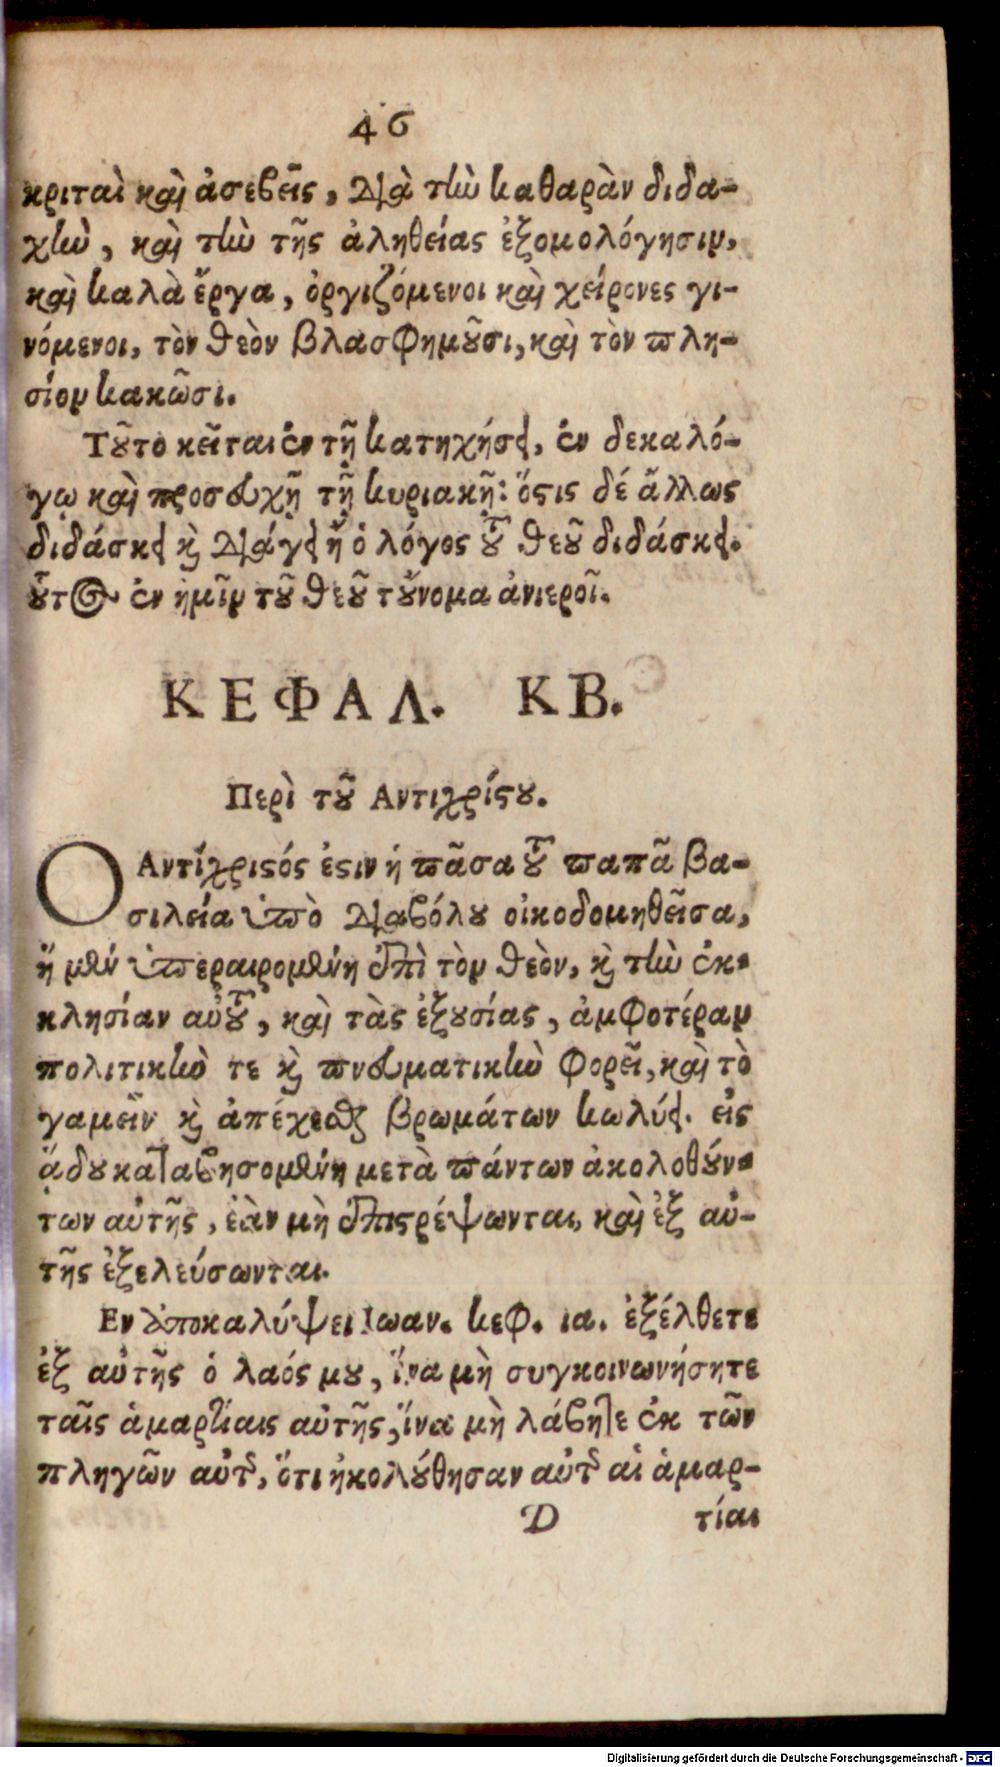 46
κριταὶ καὶ ἀσεβεῖς, διὰ τὴν καθαρὰν διδα-
χὴν, καὶ τὴν τῆς ἀληθείας ἐξομολόγησιν,
καὶ καλὰ ἔργα, ὀργιζόμενοι καὶ χείρονες γι-
νόμενοι, τὸν θεὸν βλασφημοῦσι, καὶ τὸν πλη-
σίον κακῶσι.
Τοῦτο κεῖται ἐν τῇ κατηχήσει, ἐν δεκαλό-
γῳ καὶ προσευχῇ τῇ κυριακῇ: ὅστις δέ ἄλλως
διδάσκει καὶ διάγει ἢ ὁ λόγος τοῦ θεοῦ διδάσκει.
οὗτος ἐν ἡμῖν τοῦ θεοῦ τοὔνομα ἀνιεροῖ.
ΚΕΦΑΛ. ΚΒ.
Περὶ τοῦ Αντιχρίστου.
Ο Αντίχριστός ἐστιν ἡ πᾶσα τοῦ παπᾶ βα-
σιλεία ὑπὸ διαβόλου οἰκοδομηθεῖσα,
ἥ μὲν ὑπεραιρομένη ἐπὶ τὸν θεὸν, καὶ τὴν ἐκ-
κλησίαν αὐτοῦ, καὶ τὰς ἐξουσίας, ἀμφοτέραν
πολιτικὴν τε καὶ πνευματικὴν φορεῖ, καὶ τὸ
γαμεῖν καὶ ἀπέχεσθαι βρωμάτων κωλύει. εἰς
ᾅδου καταβησομένη μετὰ πάντων ἀκολοθούν-
των αὐτῆς, ἐὰν μὴ ἐπιστρέψωνται, καὶ ἐξ αὐ-
τῆς ἐξελεύσωνται.
Εν ἀποκαλύψει Ιωαν. κεφ. ια. ἐξέλθετε
ἐξ αὐτῆς ὁ λαός μου, ἵνα μὴ συγκοινωνήσητε
ταῖς ἁμαρτίαις αὐτῆς, ἵνα μὴ λάβητε ἐκ τῶν
πληγῶν αὐτῆς, ὅτι ἠκολούθησαν αὐτῆς αἱ ἁμαρ-
D τίαι
Digitalisierung gefördert durch die Deutsche Forschungsgemeinschaft - DFG